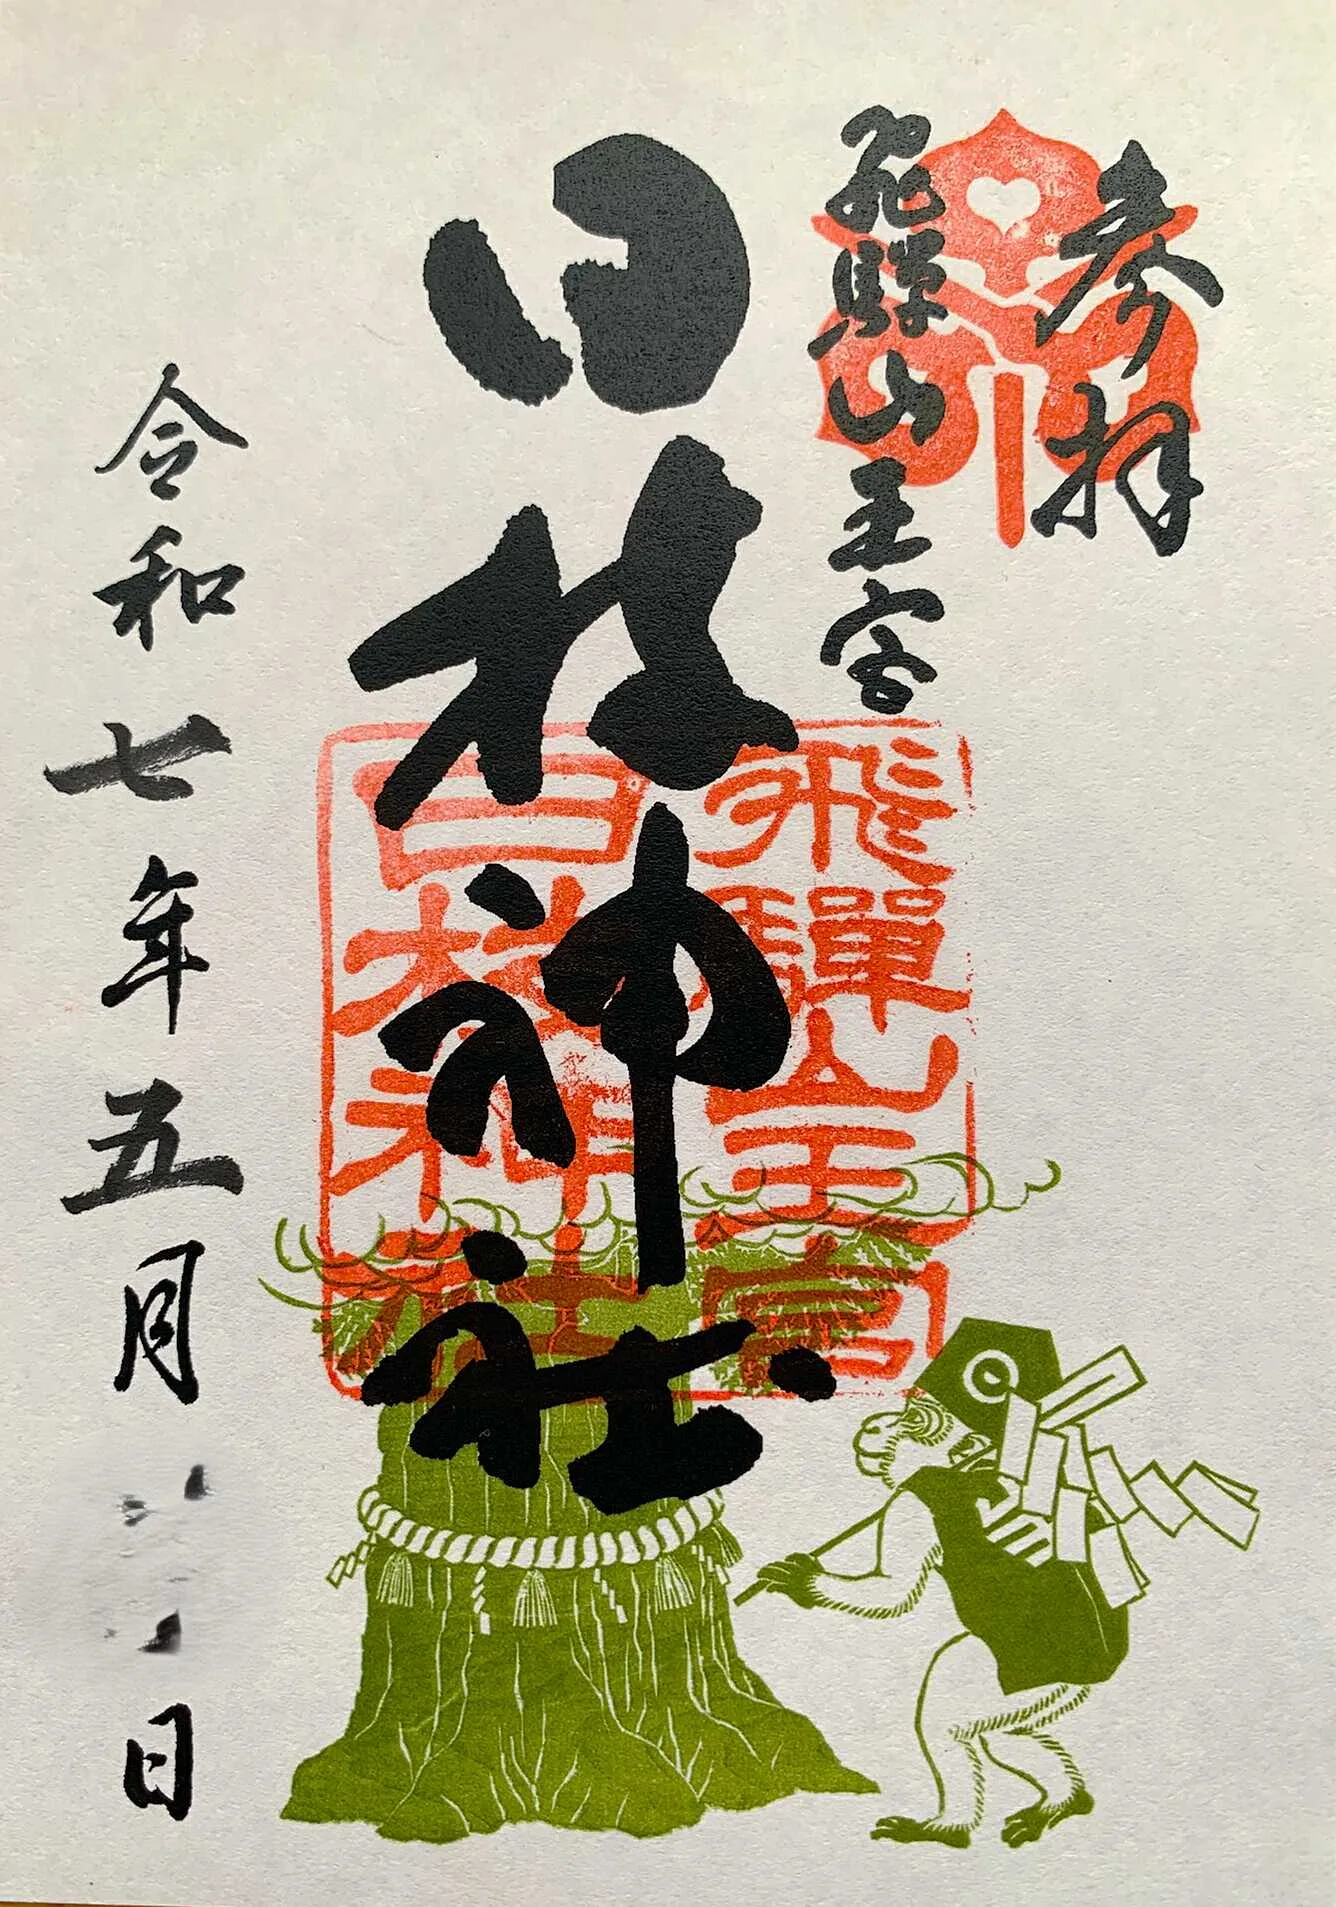 参拝
飛騨山王宮
日枝神社
飛驒山王宮
日枝神社
令和七年五月 日